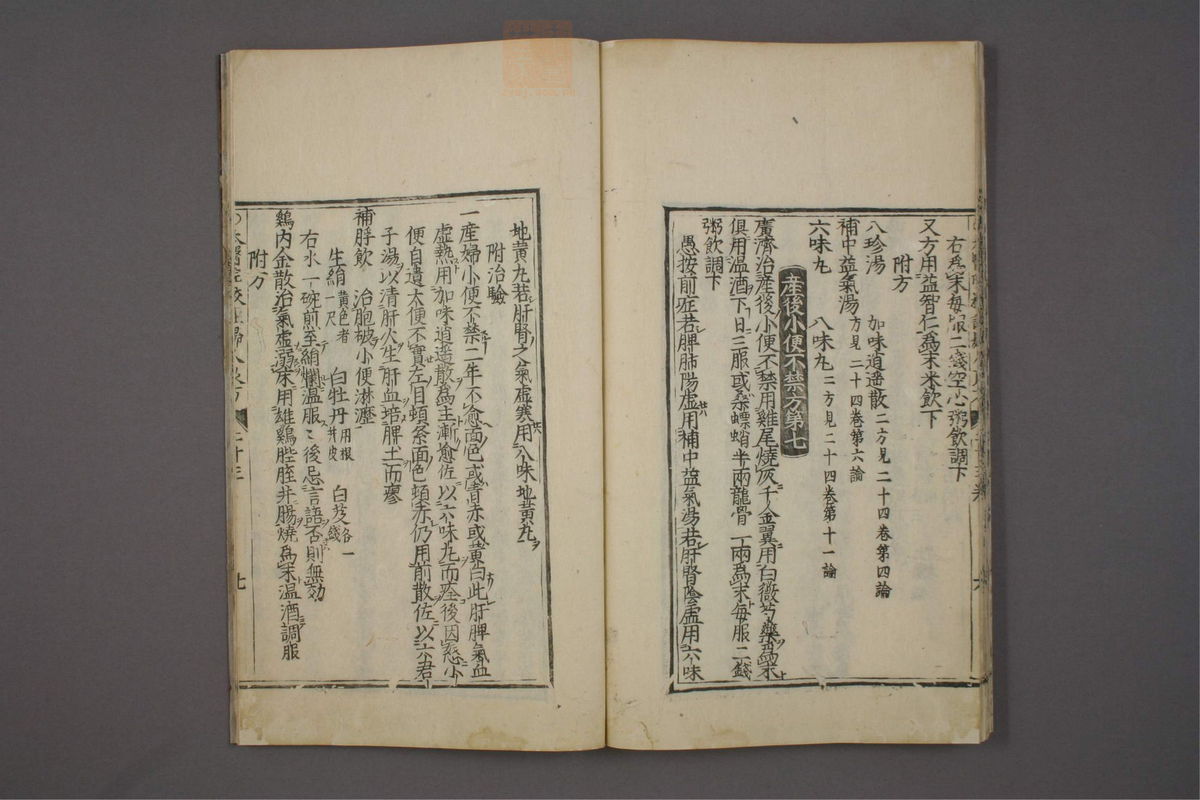 右爲末每服二錢空心粥飲調下
又方用益智仁爲末米飲下
附方
八珍湯　加味逍遥散二方見二十四卷第四論
補中益氣湯方見二十四卷第六論
六味丸　八味丸二方見二十四卷第十一論
産後小便不禁方第七
廣濟治産後小便不禁用雞尾燒灰千金翼用白薇芍藥爲末
俱用温酒下日三服或桑螵蛸半兩龍骨一兩爲末每服二錢
粥飲調下
愚按前症若脾肺陽虚用補中益氣湯若肝腎陰虚用六味
地黄丸若肝腎之氣虚寒用八味地黄丸
附治驗
一産婦小便不禁二年不愈面色或青赤或黄白此肝脾氣血
虚熱用加味逍遥散爲主漸愈佐以六味丸而痊後因怒小
便自遺大便不實左目頓緊面色頓赤仍用前散佐以六君
子湯以清肝火生肝血培脾土而瘳
補脬飲　治胞破小便淋瀝
生絹黄色者一尺　白牡丹用根并皮　白芨各一錢
右水一碗煎至絹爛温服服後忌言語否則無効
鷄内金散治氣虚溺床用雄鷄肶胵并腸燒爲末温酒調服
附方
二十三　七